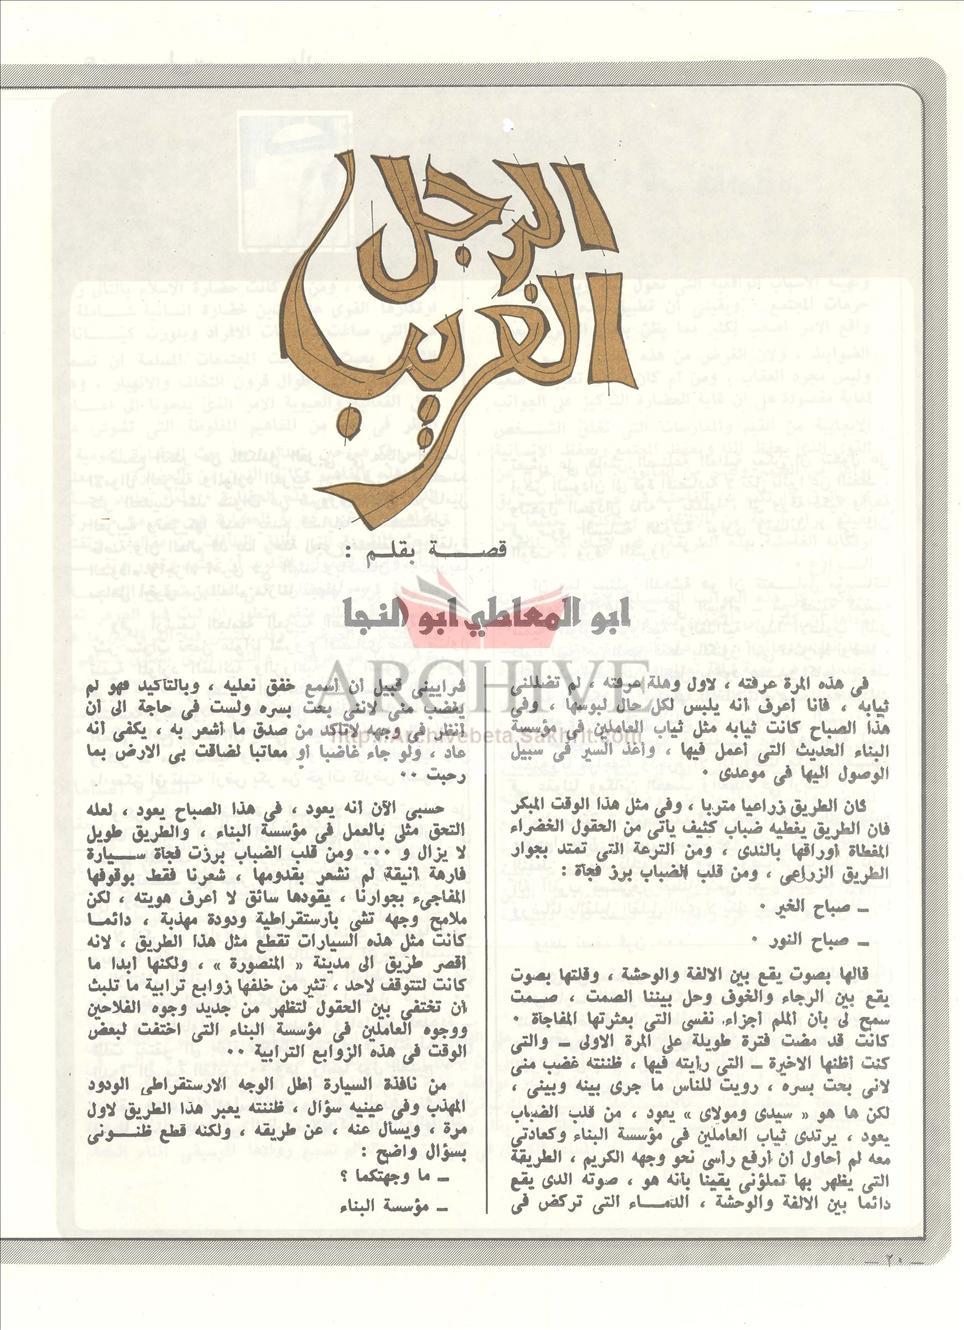 الرجل
الغريب
قصة بقلم :
ابو المعاطي ابو النجا
ARCHIVE
http://Archivebeta.Sakhrit.com
فى هذه المرة عرفته ، لاول وهلة عرفته ، لم تضللنى
ثيابه ، فأنا أعرف أنه يلبس لكل حال لبوسها ، وفي
هذا الصباح كانت ثيابه مثل ثياب العاملين فى مؤسسة
البناء الحديث التى أعمل فيها ، وأغذ السير فى سبيل
الوصول اليها فى موعدى ٠
كان الطريق زراعيا متربا ، وفى مثل هذا الوقت المبكر
كان الطريق يغطيه ضباب كثيف يأتى من الحقول الخضراء
المغطاة أوراقها بالندى ، ومن الترعة التى تمتد بجوار
الطريق الزراعى ، ومن قلب الضباب برز فجأة :
ـ صباح الخير ٠
ـ صباح النور ٠
قالها بصوت يقع بين الالفة والوحشة ، وقلتها بصوت
يقع بين الرجاء والخوف وحل بيننا الصمت ، صمت
سمح لى بأن ألملم أجزاء نفسى التى بعثرتها المفاجأة ٠
كانت قد مضت فترة طويلة على المرة الاولى ــ والتى
كنت أظنها الاخيرة ــ التى رأيته فيها ، ظننته غضب منى
لانى بحت بسره ، رويت للناس ما جرى بينه وبينى ،
لكن ها هو « سيدى ومولاى » يعود ، من قلب الضباب
يعود ، يرتدى ثياب العاملين فى مؤسسة البناء وكعادتى
معه لم أحاول أن أرفع رأسى نحو وجهه الكريم ، الطريقة
التى يظهر بها تملؤنى يقينا بأنه هو ، صوته الذى يقع
دائما بين الالفة والوحشة ، الدماء التى تركض فى
شرايينى قبيل أن أسمع خفق نعليه ، وبالتأكيد فهو لم
يغضب منى لاننى بحت بسره ولست فى حاجة الى أن
أنظر فى وجهه لاتأكد من صدق ما أشعر به ، يكفى أنه
عاد ، ولو جاء غاضبا أو معاتبا لضاقت بى الارض بما
رحبت ٠٠
حسبى الآن أنه يعود ، فى هذا الصباح يعود ، لعله
التحق مثلى بالعمل فى مؤسسة البناء ، والطريق طويل
لا يزال و ٠٠٠ ومن قلب الضباب برزت فجأة سيارة
فارهة أنيقة لم نشعر بقدومها ، شعرنا فقط بوقوفها
المفاجىء بجوارنا ، يقودها سائق لا أعرف هويته ، لكن
ملامح وجهه تشى بأرستقراطية ودودة مهذبة ، دائما
كانت مثل هذه السيارات تقطع مثل هذا الطريق ، لانه
أقصر طريق الى مدينة « المنصورة » ، ولكنها أبدا ما
كانت لتتوقف لاحد ، تثير من خلفها زوابع ترابية ما تلبث
أن تختفى بين الحقول لتظهر من جديد وجوه الفلاحين
ووجوه العاملين فى مؤسسة البناء التى اختفت لبعض
الوقت فى هذه الزوابع الترابية ٠٠
من نافذة السيارة أطل الوجه الارستقراطى الودود
المهذب وفى عينيه سؤال ، ظننته يعبر هذا الطريق لاول
مرة ، ويسأل عنه ، عن طريقه ، ولكنه قطع ظنونى
بسؤال واضح :
ـ ما وجهتكما ؟
ـ مؤسسة البناء
— ٢٠ —